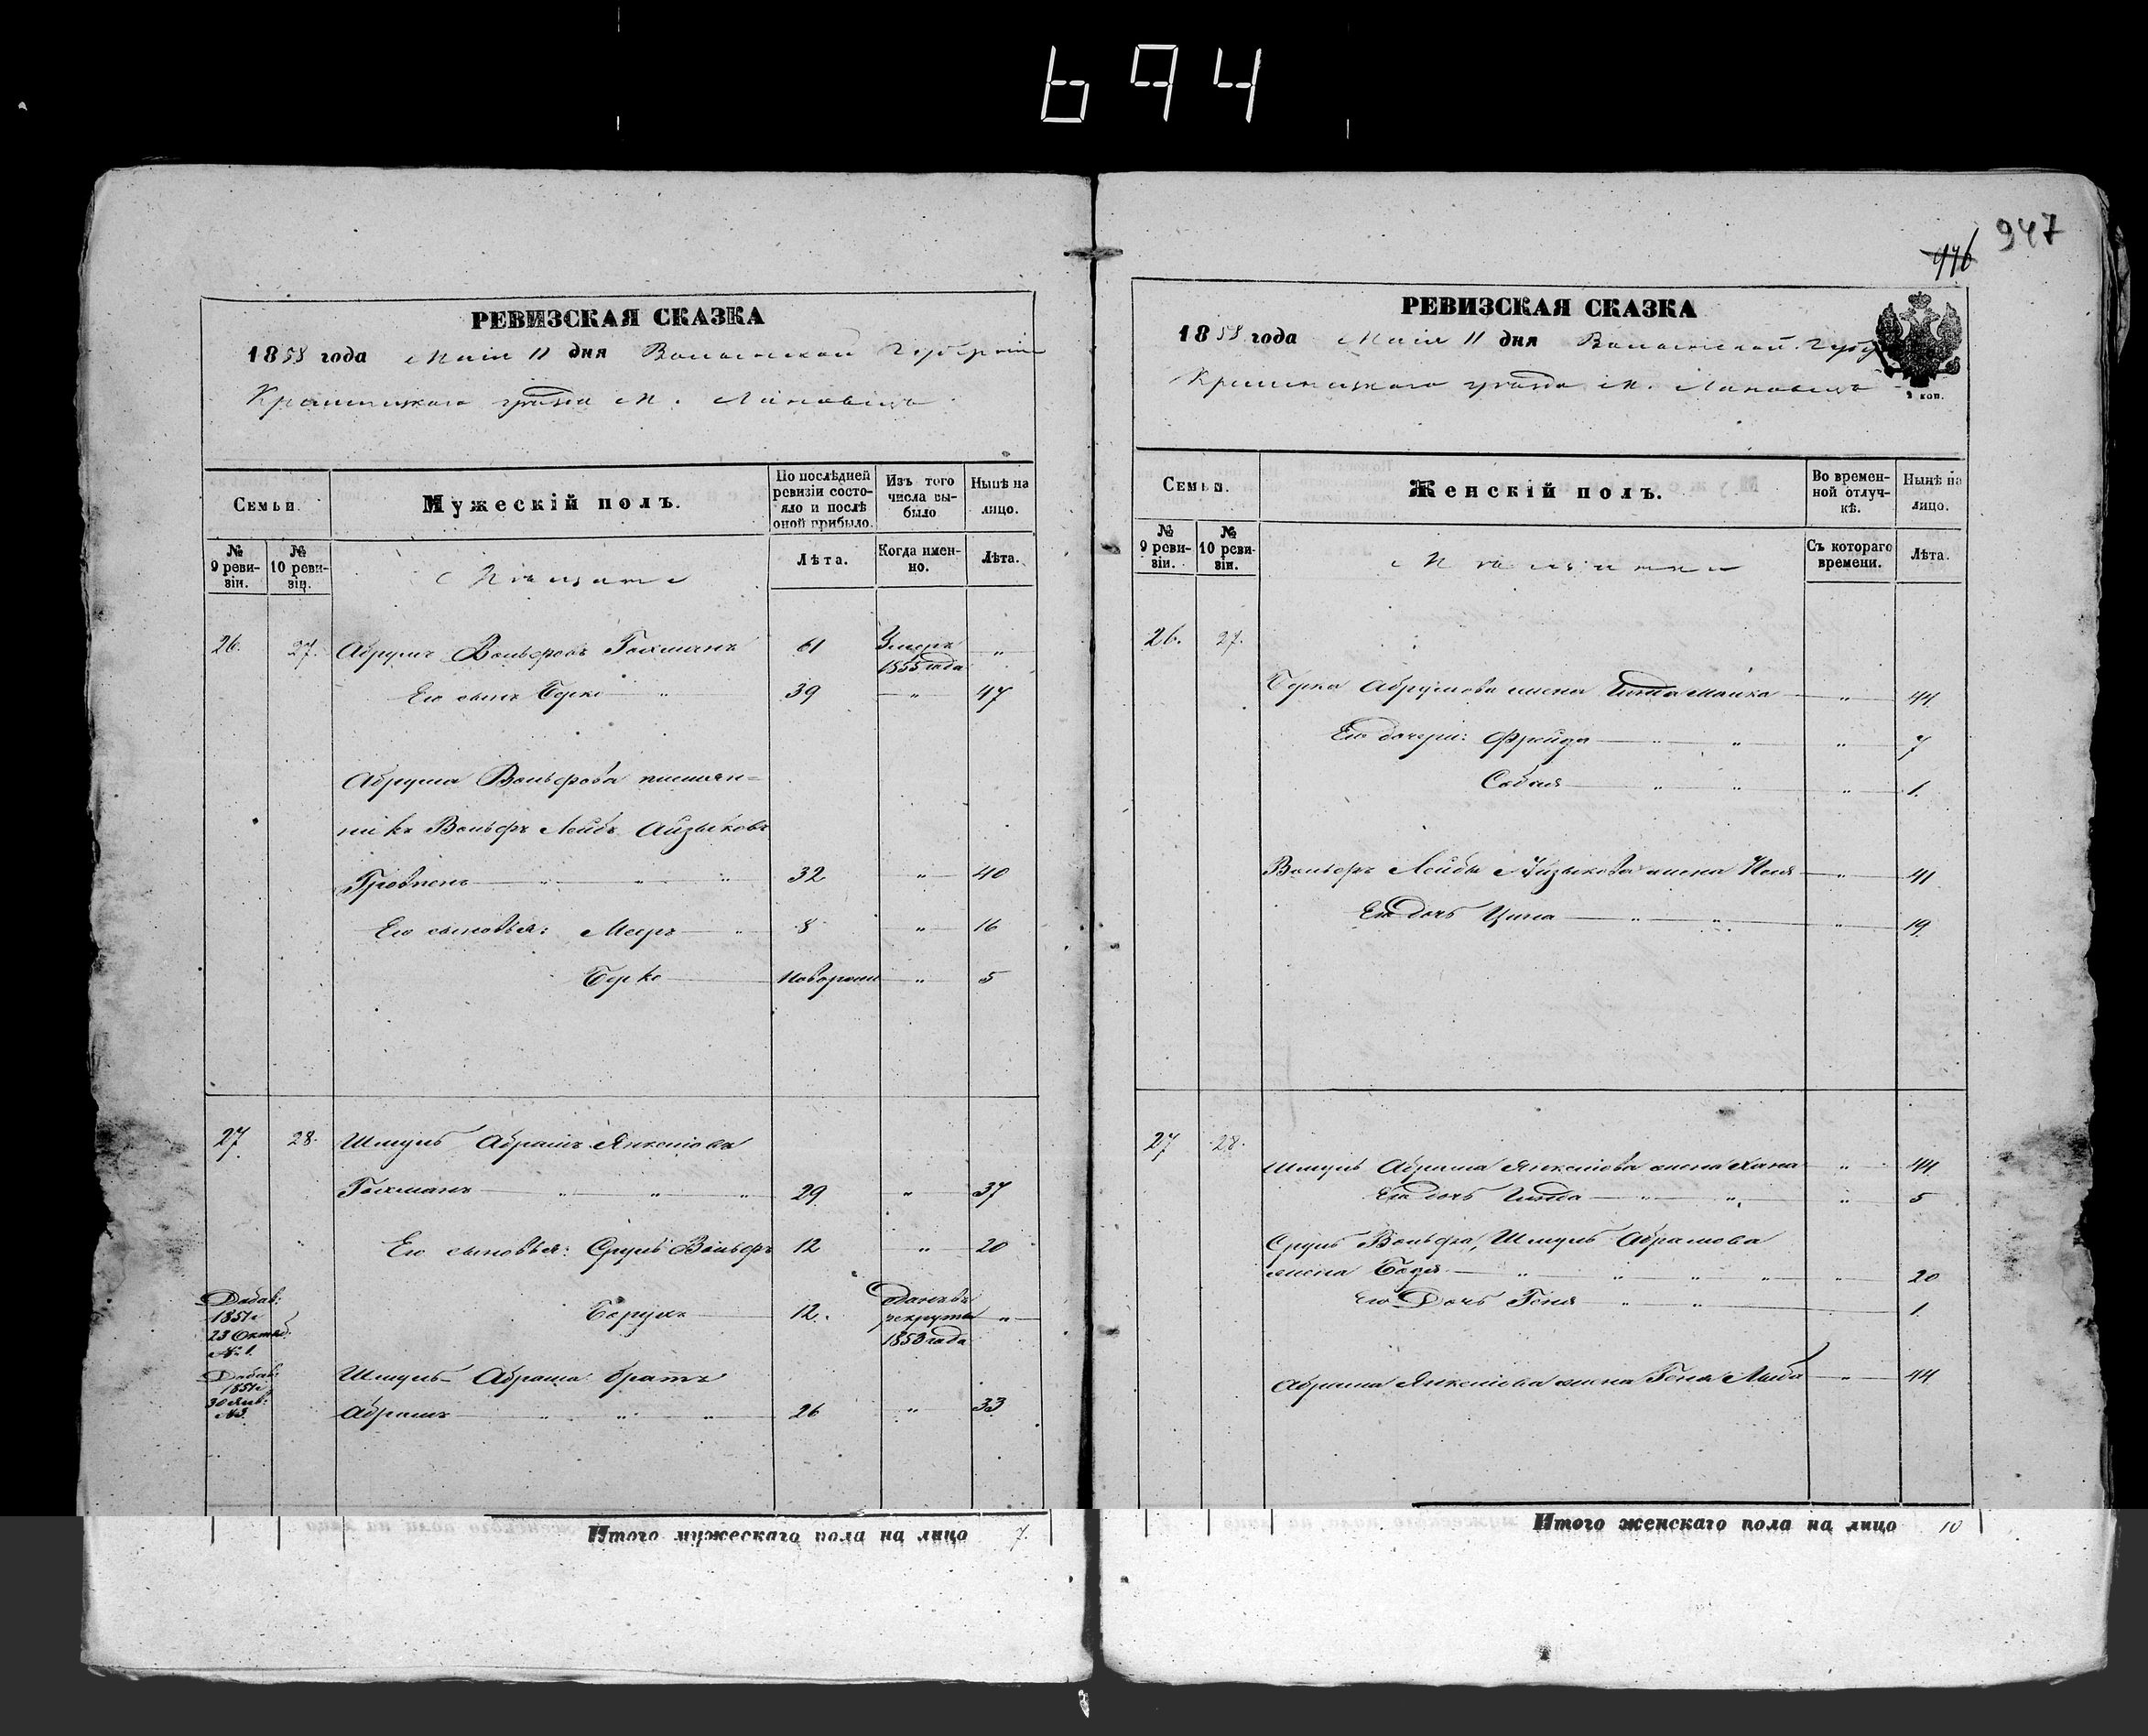 694
947
946
РЕВИЗСКАЯ СКАЗКА
1858 года Маія 11 дня Волынской Губерніи
Кременецкаго уѣзда м. Лановецъ
Семьи.
Мужескій полъ.
По послѣдней ревизіи состояло и послѣ оной прибыло.
Изъ того числа выбыло
Нынѣ на лицо.
№ 9 ревизіи.
№ 10 ревизіи.
Мѣщане
Лѣта.
Когда именно.
Лѣта.
26. 27. Абрумъ Вольфовъ Гохманъ 61 Умеръ 1855 года "
Его сынъ Борко " 39 " 47
Абрума Вольфова племян=
никъ Вольфъ Лейбъ Айзыковъ
32 " 40
Его сыновья: Мееръ " 8 " 16
Борко новорожд " 5
27 28. Шмуль Абрамъ Янкелiовъ
Гохманъ " " " 29 " 37
Его сыновья: Сруль Вольфъ 12 " 20
Добав: 1851г 23 Октяб: № 1.
Борухъ 12. Отданъ въ рекруты 1853 года "
Добав: 1851г 30 Янв: №3.
Шмуль Абрама братъ
Абрамъ " " " 26 " 33
Итого мужескаго пола на лицо 7.
РЕВИЗСКАЯ СКАЗКА
1858 года Маія 11 дня Волынской Губ
Кременецкаго уѣзда м. Лановецъ
2 коп.
Семьи.
Женскій полъ.
Во временной отлучкѣ.
Нынѣ на лицо.
№ 9 ревизіи.
№ 10 ревизіи.
Мѣщанки
Съ котораго времени.
Лѣта.
26. 27.
Борка Абрумова жена Гитла Малка " 44
Его дочери: Фрейда " " " 7
Собля " " " 1.
Вольфъ Лейбы Айзыкова жена Неся " 41
Его дочь Ципа " " " 19
27 28.
Шмуль Абрама Янкелiова жена Хана " 44
Его дочь Гитла " " " 5
Сруль Вольфа, Шмуль Абрамова
жена Бася " " " " " 20
Его Дочь Геня " " 1.
Абрама Янкелiова жена Геня Либа " 44
Итого женскаго пола на лицо 10